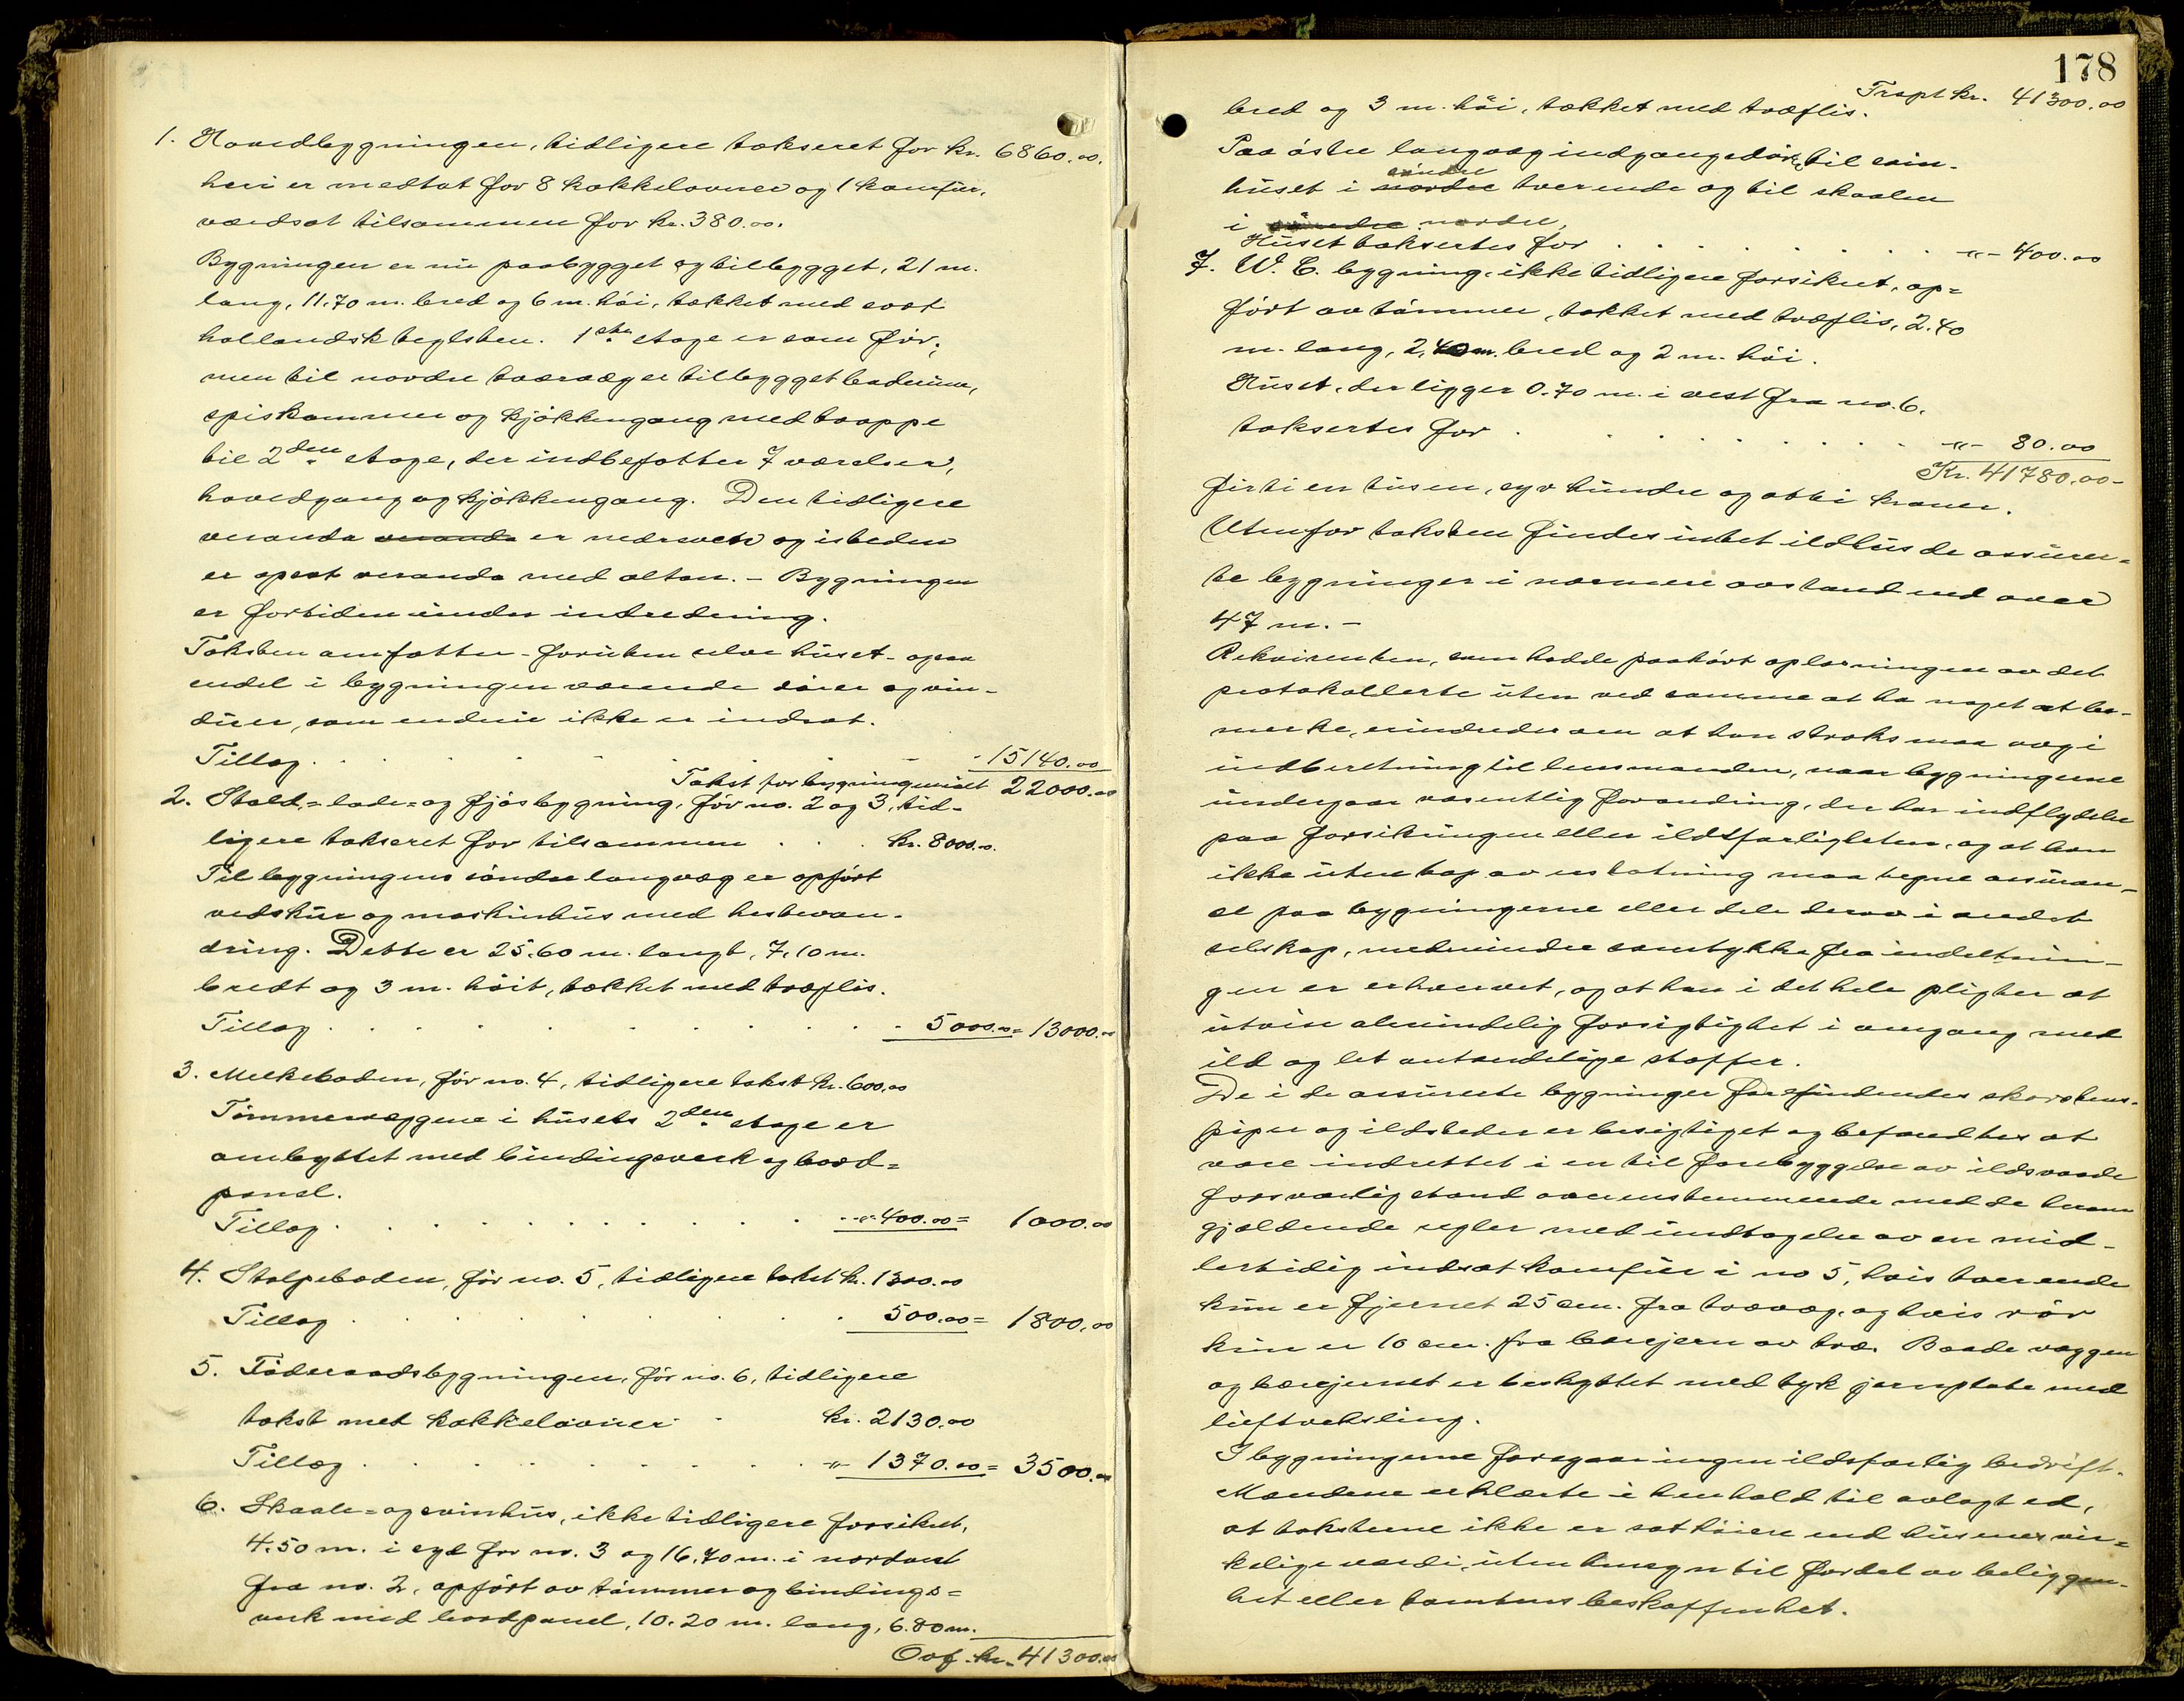 1. Hovedbygningen, tidligere takseret for kr. 6860.00.
heri er medtat for 8 kakkelovner og 1 komfur,
værdsat tilsammen for kr. 380.00.
Bygningen er nu paabygget og tilbygget, 21 m.
lang, 11.70 m. bred og 6 m. høi, tækket med svart
hollandsk teglsten. 1ste etage er som før;
men til nordre tværvæg er tilbygget baderum,
spiskammer og kjøkkengang med trappe
til 2den etage, der indbefatter 7 værelser,
hovedgang og kjøkkengang. Den tidligere
veranda veranda er nedrevet og isteden
er opsat veranda med altan. - Bygningen
er fortiden under indredning.
Taksten omfatter - foruten selve huset - ogsaa
endel i bygningen værende dører og vin-
duer, som endnu ikke er indsat.
Tillæg . . . . . . . - 15140.00
Takst for bygningen ialt 22000.00
2. Stald,= lade= og fjøsbygning, før no. 2 og 3, tid-
ligere takseret for tilsammen . . . kr. 8000.00.
Til bygningens søndre langvæg er opført
vedskur og maskinhus med hestevan-
dring. Dette er 25.60 m. langt, 7.10 m.
bredt og 3 m. høit, tækket med træflis.
Tillæg . . . . . . . . 5000.00 = 13000.00
3. Melkeboden, før no. 4, tidligere takst kr. 600.00
Tømmervæggene i husets 2den etage er
ombyttet med bindingsverk og bord=
panel.
Tillæg . . . . . . . . -"- 400.00 = 1000.00
4. Stolpeboden, før no. 5, tidligere takst kr. 1300.00
Tillæg . . . . . . . . 500.00 = 1800.00
5. Føderaadsbygningen, før no. 6, tidligere
takst met kakkelovner . kr. 2130.00
Tillæg . . . . . . . . -"- 1370.00 = 3500.00
6. Skaale= og svinhus, ikke tidligere forsikret,
4.50 m. i syd for no. 3 og 16.70 m. i nordvest
fra no. 2, opført av tømmer og bindings=
verk med bordpanel, 10.20 m. lang, 6.80 m.
Ovf. kr. 41300.00
178
Trspt kr. 41300.00
bred og 3 m. høi, tækket med træflis.
Paa østre langvæg indgangsdør til svin-
søndre
huset i nordre tverende og til skaalen
i søndre nordre.
Huset taksertes for . . . . . . . -"- 400.00
7. W. C. bygning, ikke tidligere forsikret, op=
ført av tømmer, tækket med træflis, 2.40
m. lang, 2,40 m. bred og 2 m. høi.
Huset, der ligger 0.70 m. i vest fra no. 6,
taksertes for . . . . . . . . -"- 80.00
Kr. 41780.00-
firti en tusen, syv hundre og otti kroner.
Utenfor taksten findes intet ildhus de assurer=
te bygninger i nærmere avstand end over
47 m. -
Rekvirenten, som hadde paahørt oplæsningen av det
protokollerte uten ved samme at ha noget at be-
merke, erindredes om at han straks maa avgi
indberetning til lensmanden, naar bygningerne
undergaar væsentlig forandring, der har indflydelse
paa forsikringen eller ildsfarligheten, og at han
ikke uten tap av erstatning maa tegne assuran-
se paa bygningerne eller dele derav i andet
selskap, medmindre samtykke fra indretnin-
gen er erhvervet, og at han i det hele pligter at
utvise almindelig forsigtighet i omgang med
ild og let antændelige stoffer.
De i de assurerte bygninger forefindendes skorstens-
piper og ildsteder er besigtiget og befandtes at
være indrettet i en til forebyggelse av ildsvaade
forsvarlig stand overensstemmende med de herom
gjældende regler med undtagelse av en mid-
lertidig indsat komfur i no 5, hvis tverende
kun er fjernet 25 cm. fra trævæg, og hvis rør
kun er 10 cm. fra bærejern av træ. Baade væggen
og bærejernet er beskyttet med tyk jernplate med
luftveksling.
I bygningerne foregaar ingen ildsfarlig bedrift.
Mændene erklærte i henhold til avlagt ed,
at taksterne ikke er sat høiere end husenes vir=
kelige værdi, uten hensyn til fordel av beliggen-
het eller tomtens beskaffenhet.